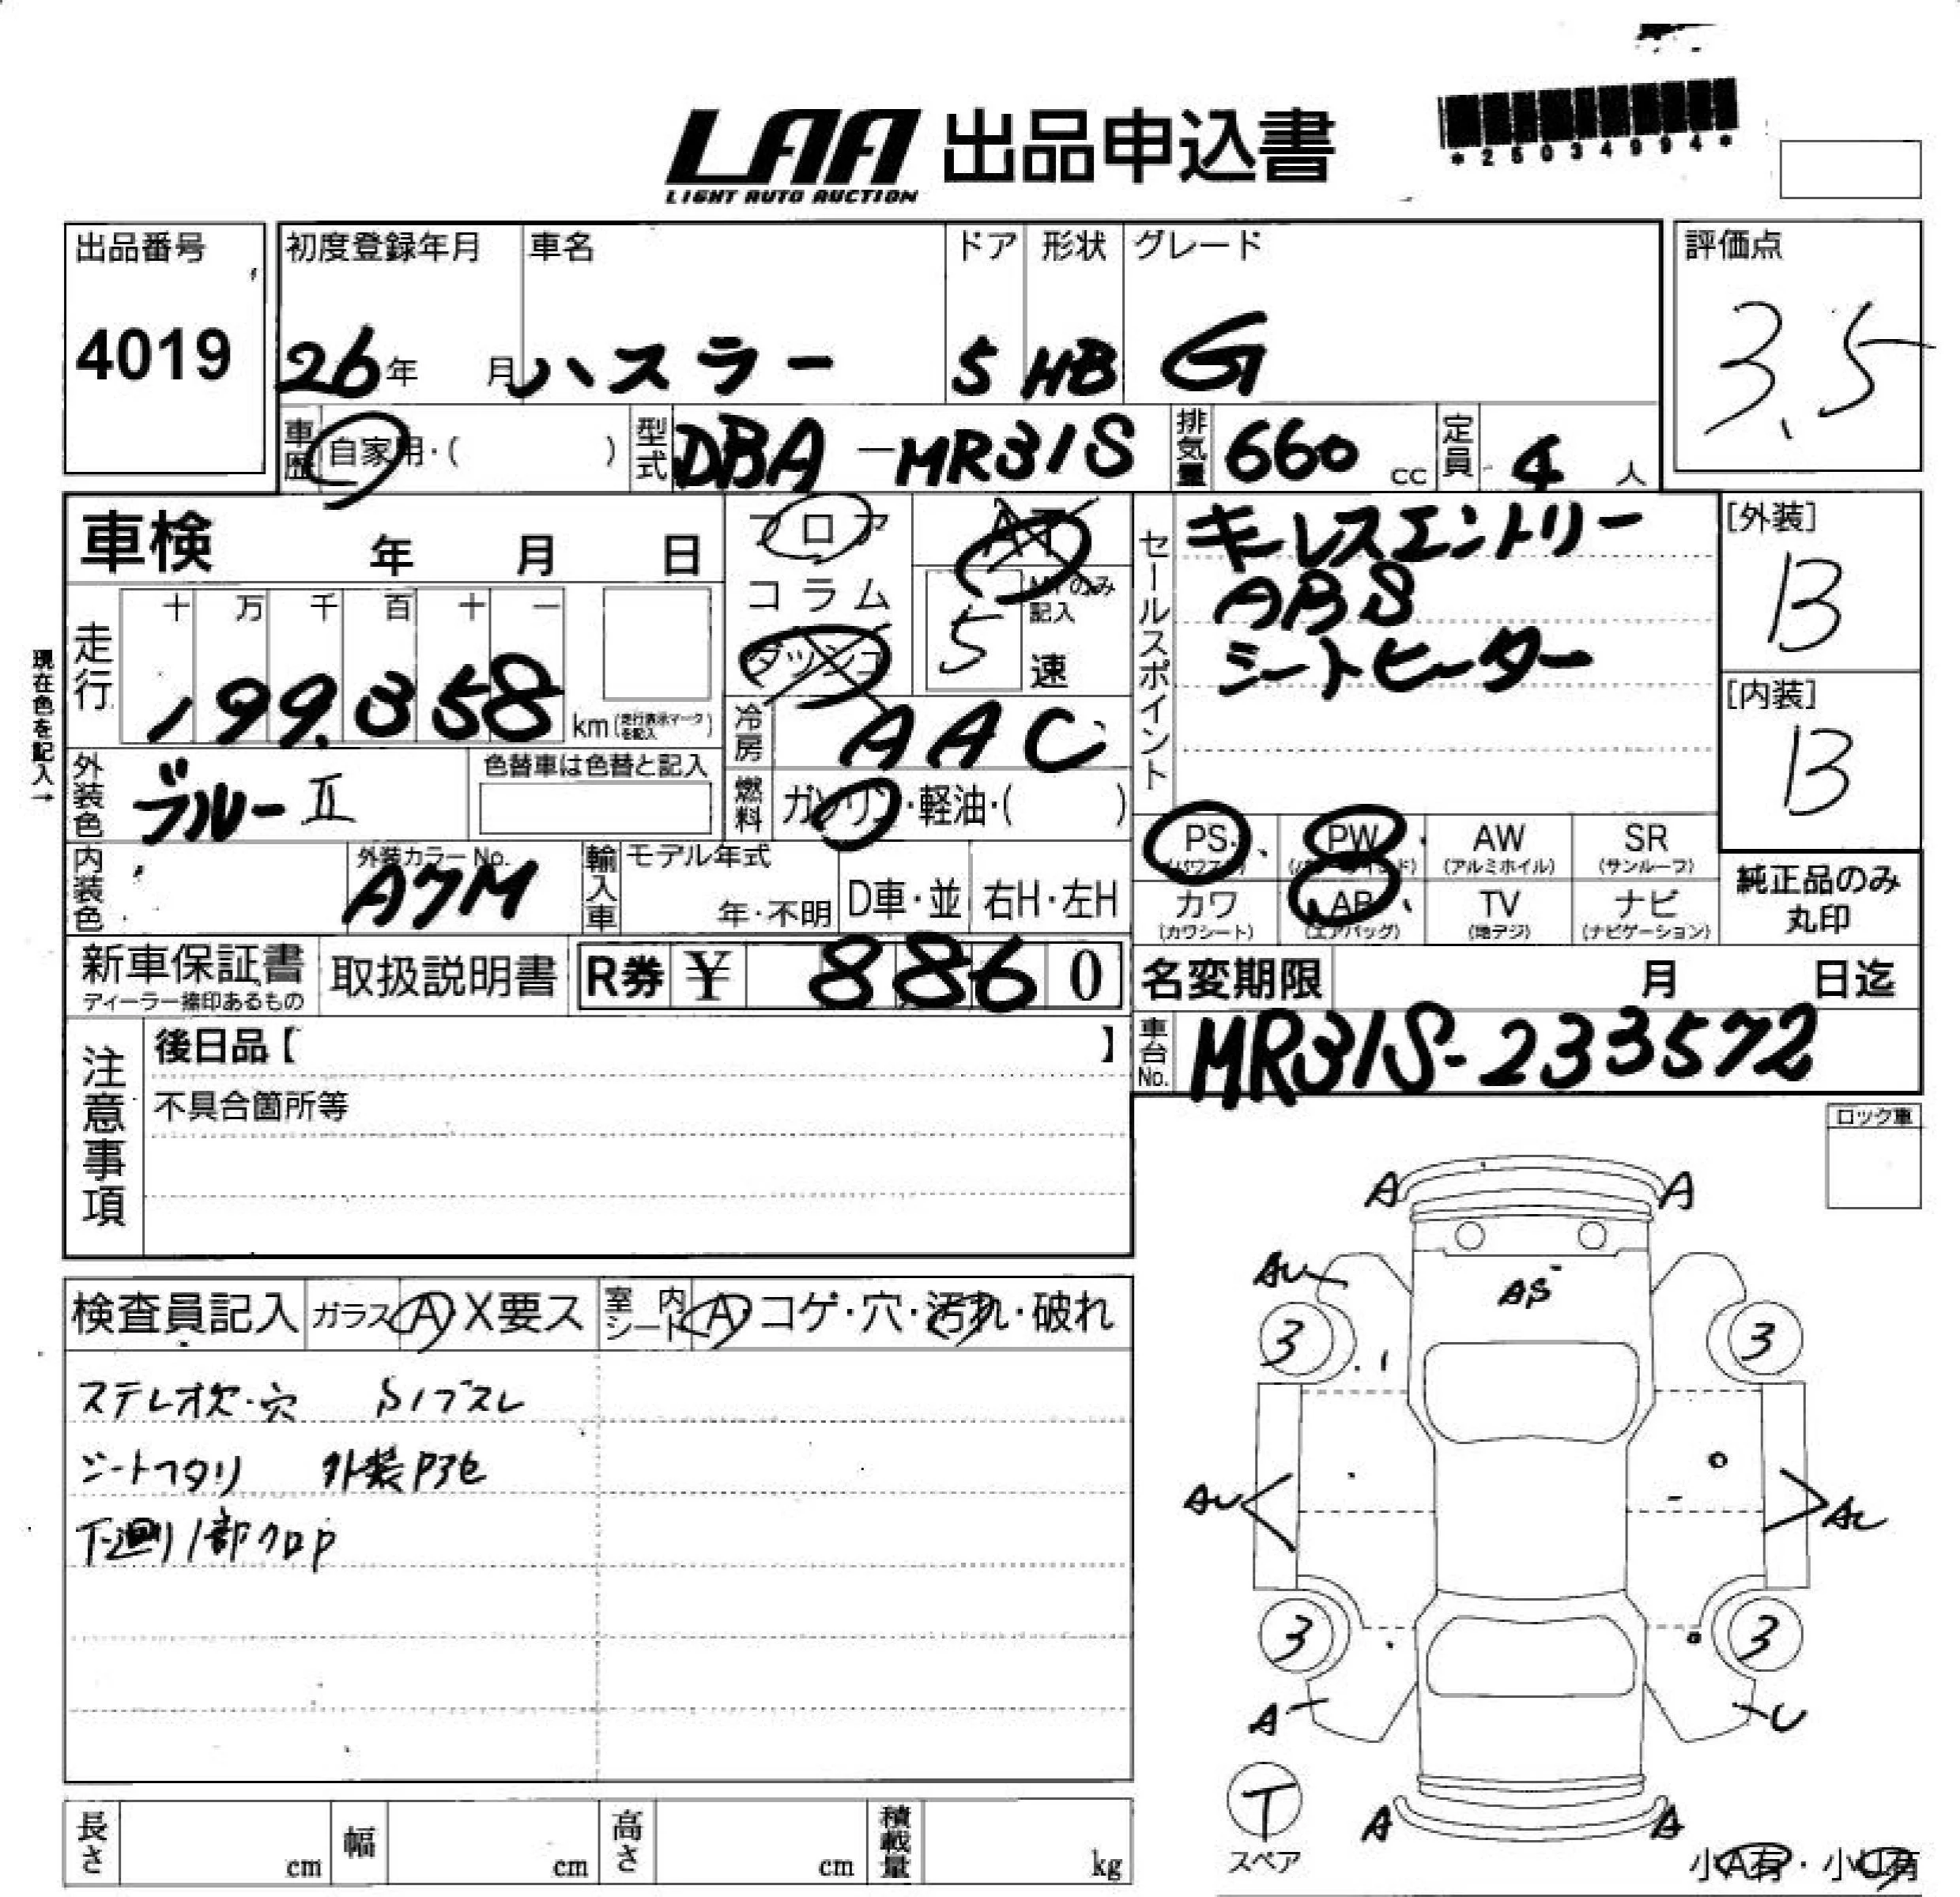 LAA 出品申込書
LIGHT AUTO AUCTION
*25034994*
出品番号
4019
初度登録年月 車名 ドア 形状 グレード
26年 月 ハスラー 5 HB G
評価点
3.5
車歴 自家用・( ) 型式 DBA-MR31S 排気量 660 cc 定員 4 人
車検 年 月 日
フロア AT
コラム MTのみ記入
ダッシュ 5 速
セールスポイント
キーレスエントリー
ABS
シートヒーター
[外装]
B
[内装]
B
現在色を記入→
走行 十 万 千 百 十 一
199,358 km (走行表示マークを記入)
冷房 AAC
外装色 ブルーⅡ 色替車は色替と記入
燃料 ガソリン・軽油・( )
PS (パワステ) PW (パワーウインド) AW (アルミホイル) SR (サンルーフ)
カワ (カワシート) AB (エアバッグ) TV (地デジ) ナビ (ナビゲーション)
純正品のみ
丸印
内装色 外装カラーNo. 輸入車 モデル年式
年・不明 D車・並 右H・左H
新車保証書 取扱説明書 R券 ¥ 8860
ディーラー捺印あるもの
名変期限 月 日迄
車台No. MR31S-233572
注意事項
後日品【 】
不具合箇所等
ロック車
検査員記入 ガラス A・X要ス 室内シート A・コゲ・穴・汚れ・破れ
ステレオ欠・穴
シートフタリ 外装P3色
下廻り1部クロP
A A
AU AS
3 3
AU
3 3
A U
T
スペア
A A
小A有・小U有
長さ cm 幅 cm 高さ cm 積載量 kg